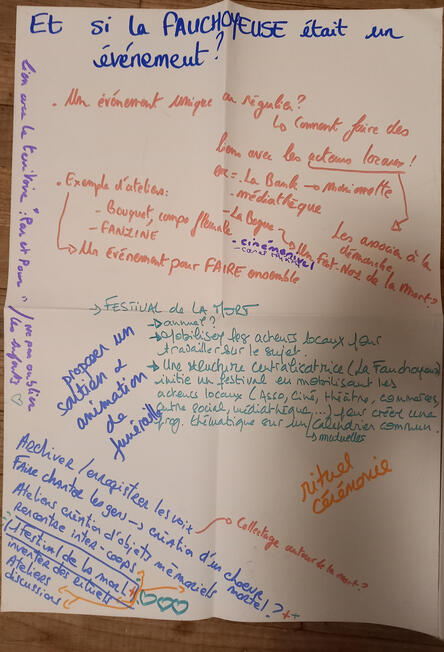 Et si la FAUCHOYEUSE était un
événement?
. Un événement unique ou régulier?
↳ Comment faire des
liens avec les acteurs locaux!
ex = . La Bank → marionette
- médiathèque
- La Bogue
- cinéménivel
. Exemple d'atelier:
- Bouquet, compo florale
- FANZINE
→ Un événement pour FAIRE ensemble
Les associa à la
démarche
Un Fest-Noz de la Mort?
lien avec le territoire: "Par et pour"
/ ne pas oublier
les enfants ♡
→ FESTIVAL DE LA MORT
→ annuel?
→ Mobiliser les acteurs locaux pour
travailler sur le sujet.
→ Une structure centralisatrice (La Fauchoyeuse)
initie un festival en mobilisant les
acteurs locaux (Asso, ciné, théâtre, commerces,
centre social, médiathèque, ...) pour créer une
prog. thématique sur un calendrier commun.
↳ mutuelles
proposer un
soutien &
animation
de
funéraille
rituel
cérémonie
Archiver / enregistrer les voix
Faire chanter les gens → création d'un choeur
mortel? ++
→ Collectage autour de la mort?
Ateliers création d'objets mémoriels
rencontre inter-coops
festival de la mort!
inventer des rituels
Ateliers
discussions